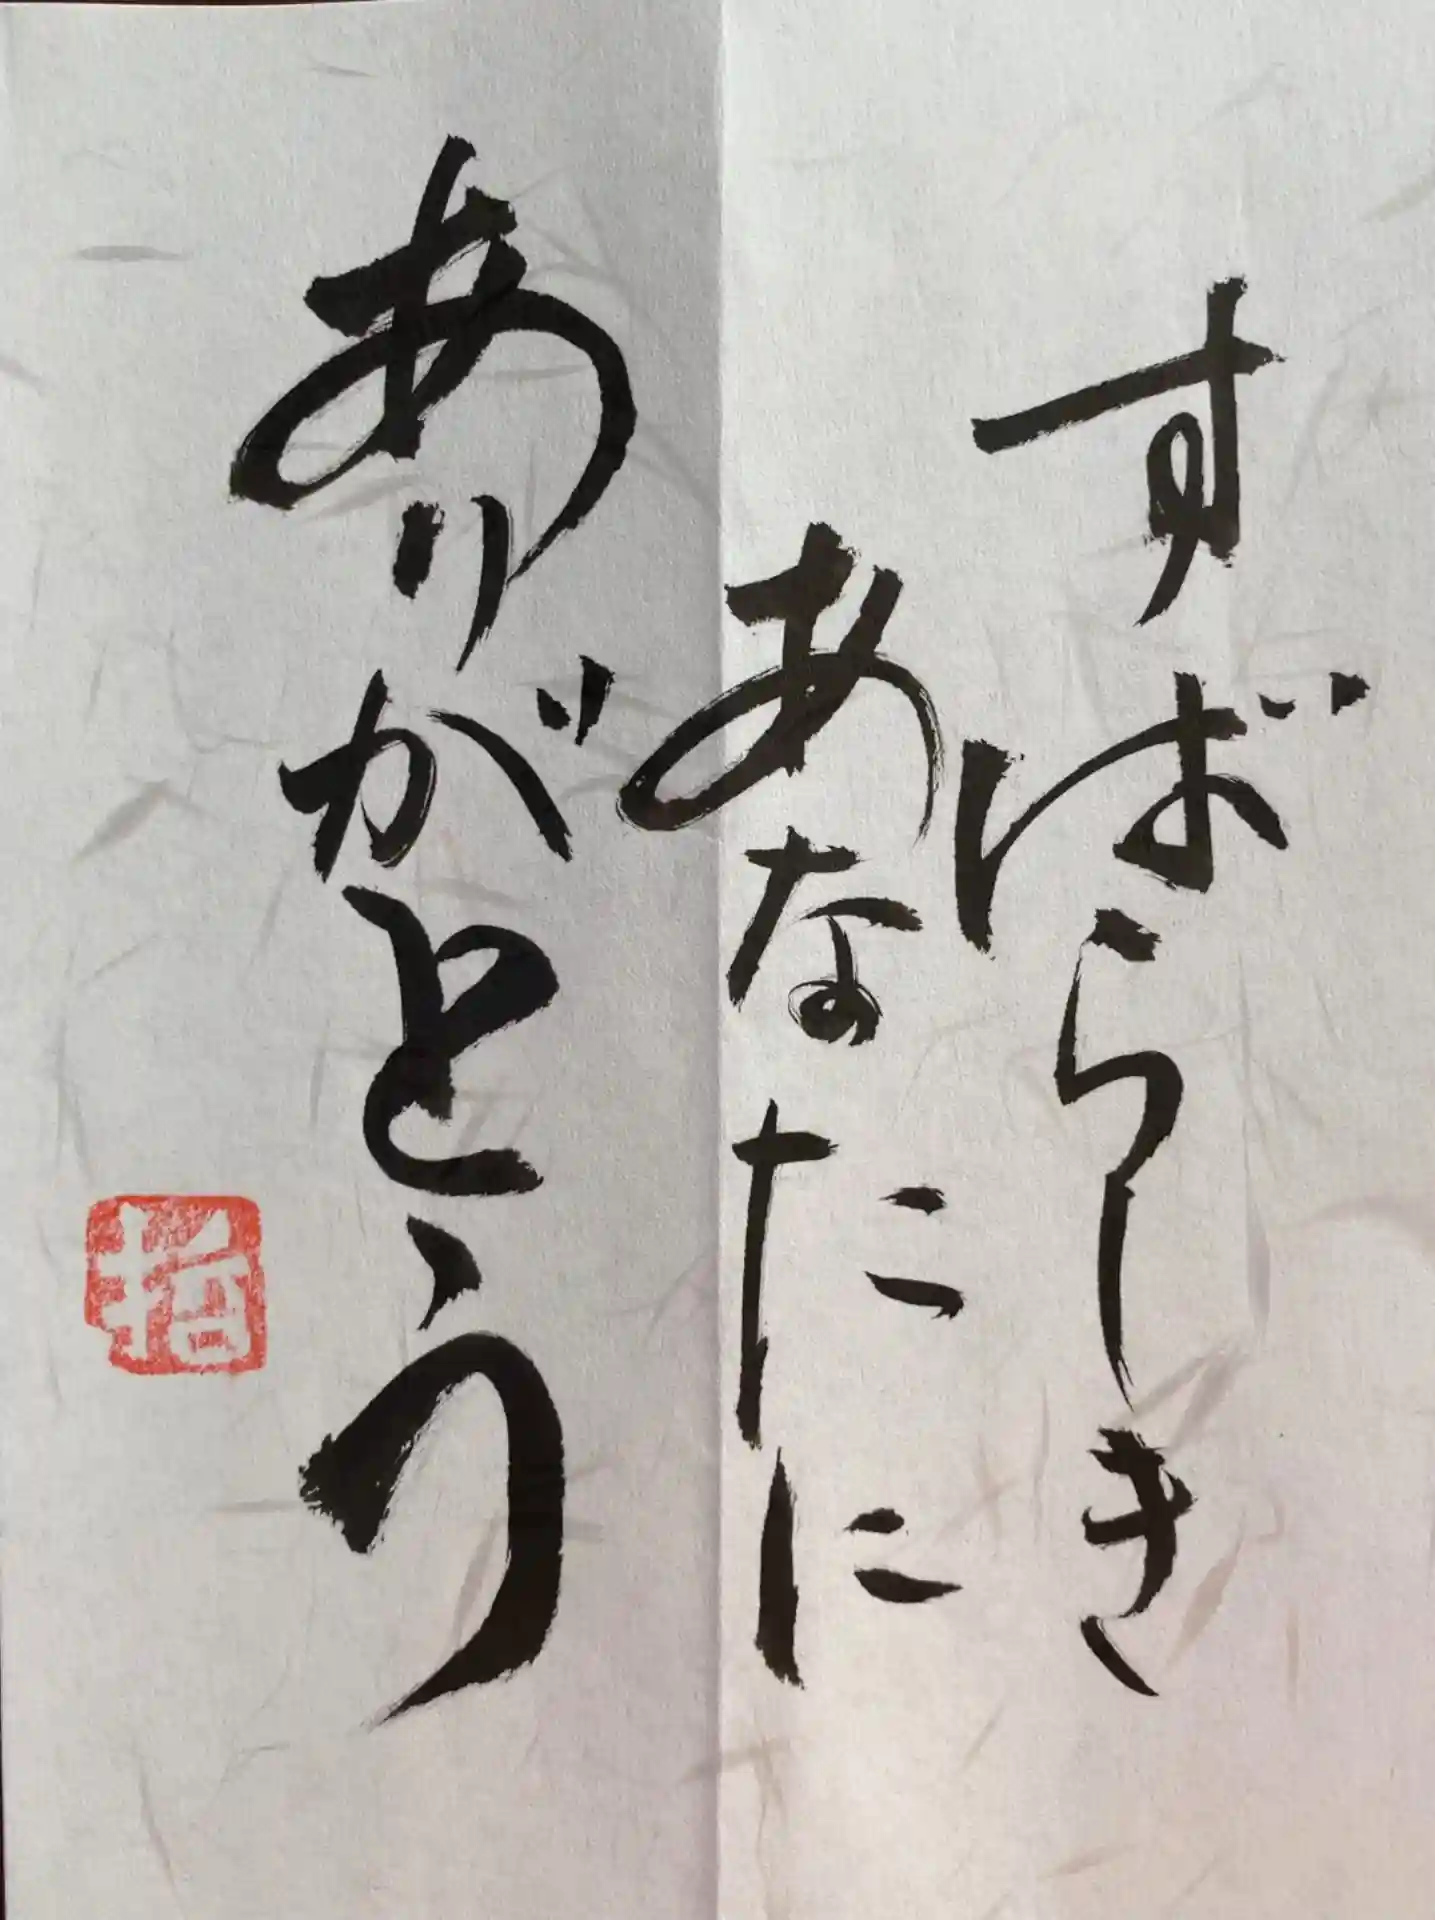 すばらしき
あなたに
ありがとう